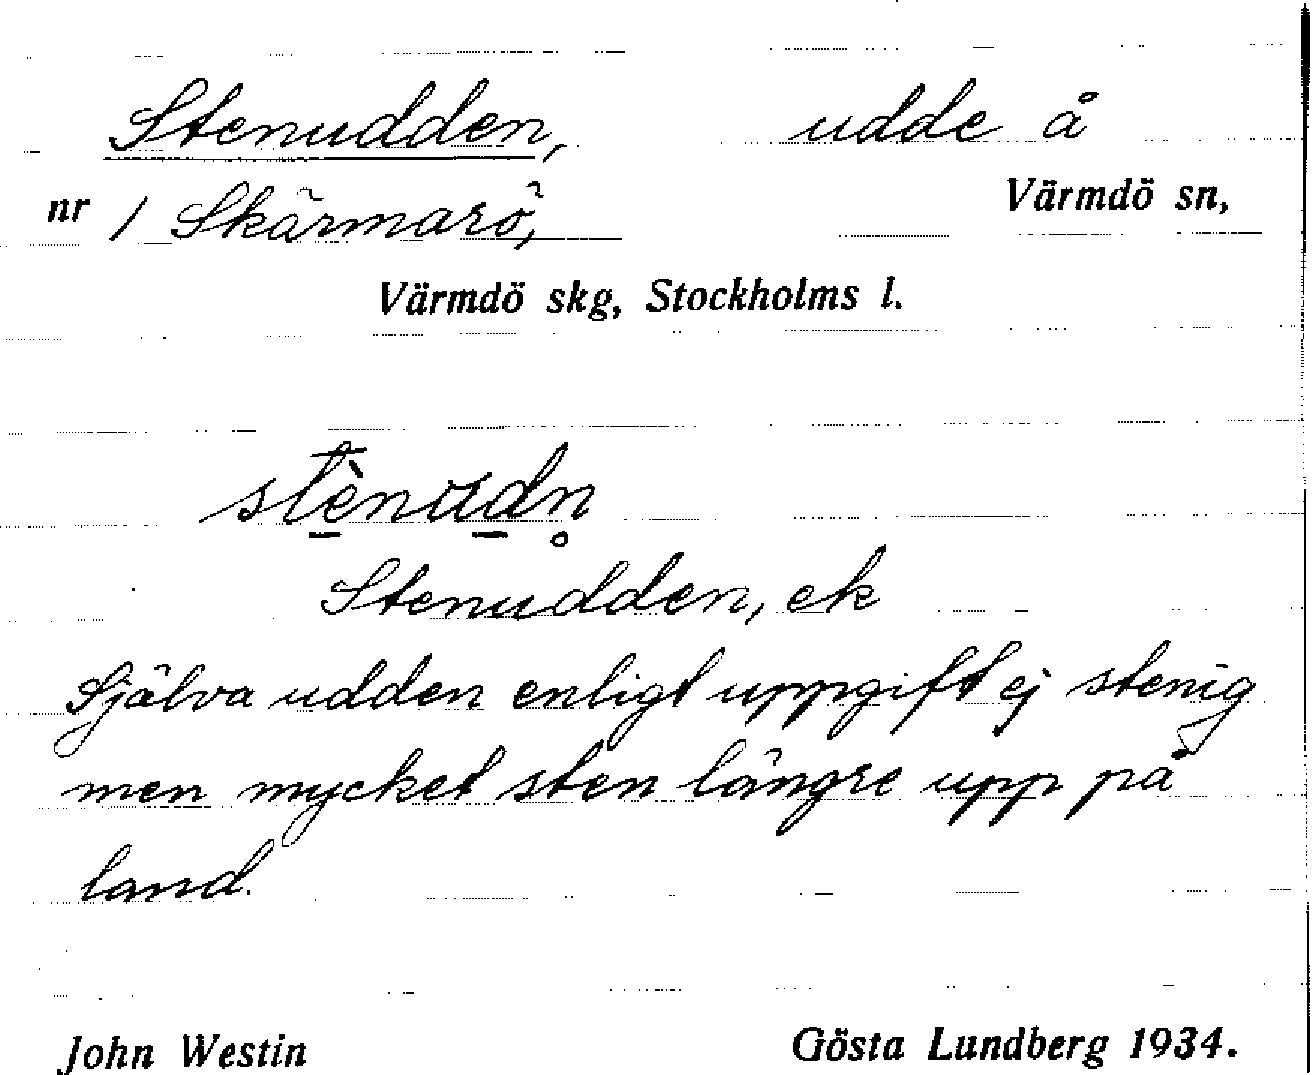 Stenudden, udde å
nr 1 Skärmarö, Värmdö sn,
Värmdö skg, Stockholms l.
Stenudden, ek
Själva udden enligt uppgift ej stenig
men mycket sten längre upp på
land.
John Westin Gösta Lundberg 1934.